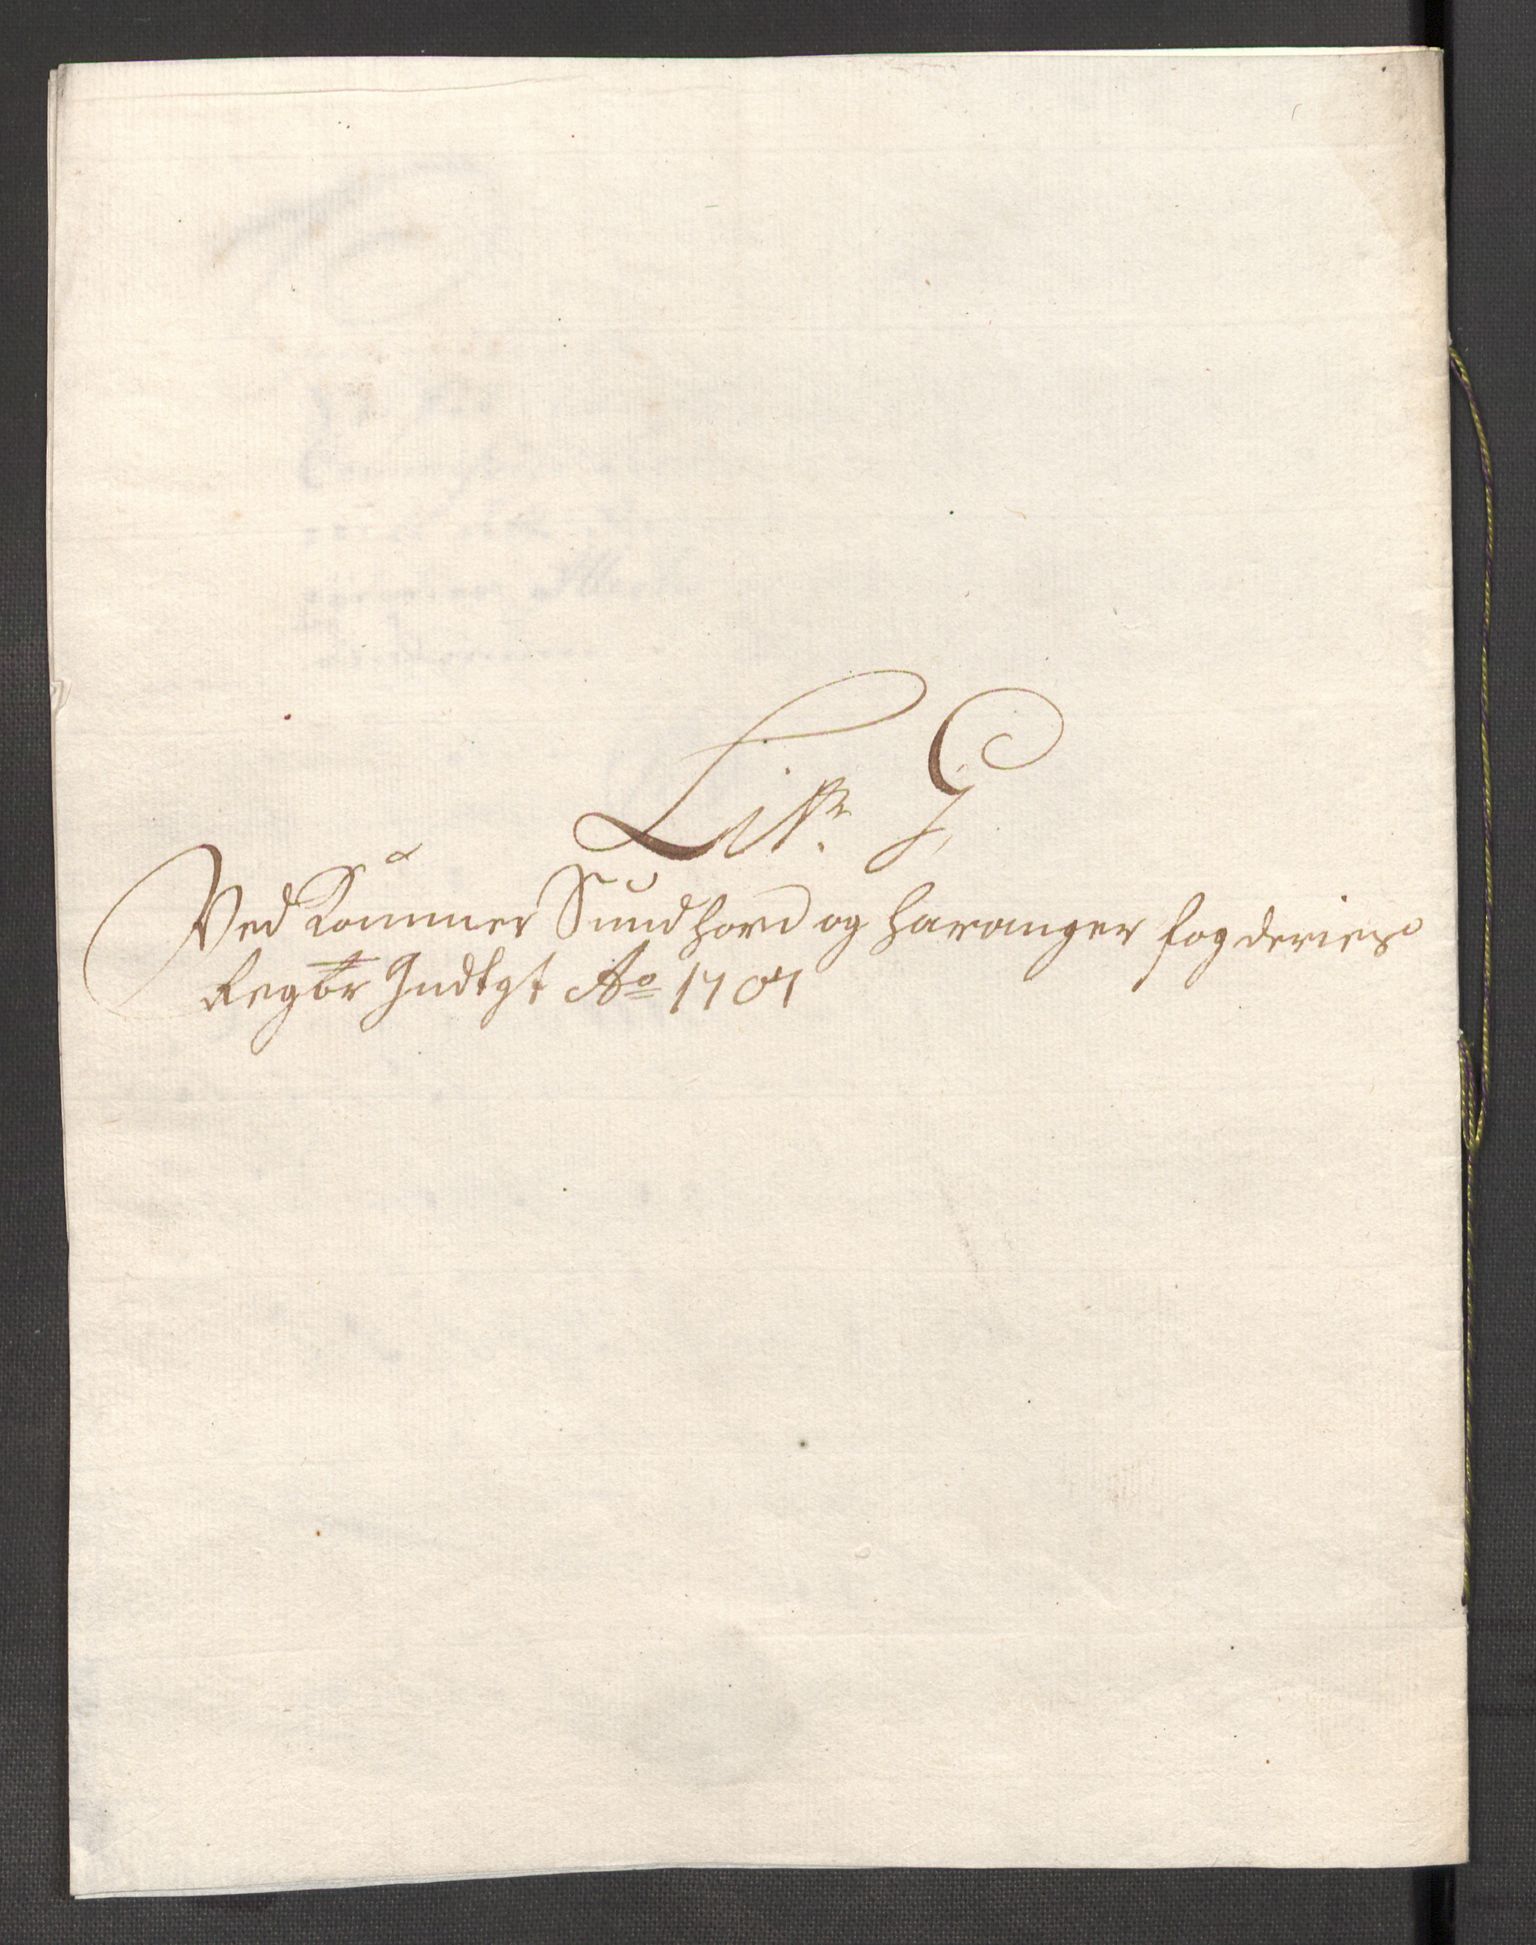 Litr. G
Ved Kommer Sundhord og haranger fogderies
Regbr Indtgt Ao 1707